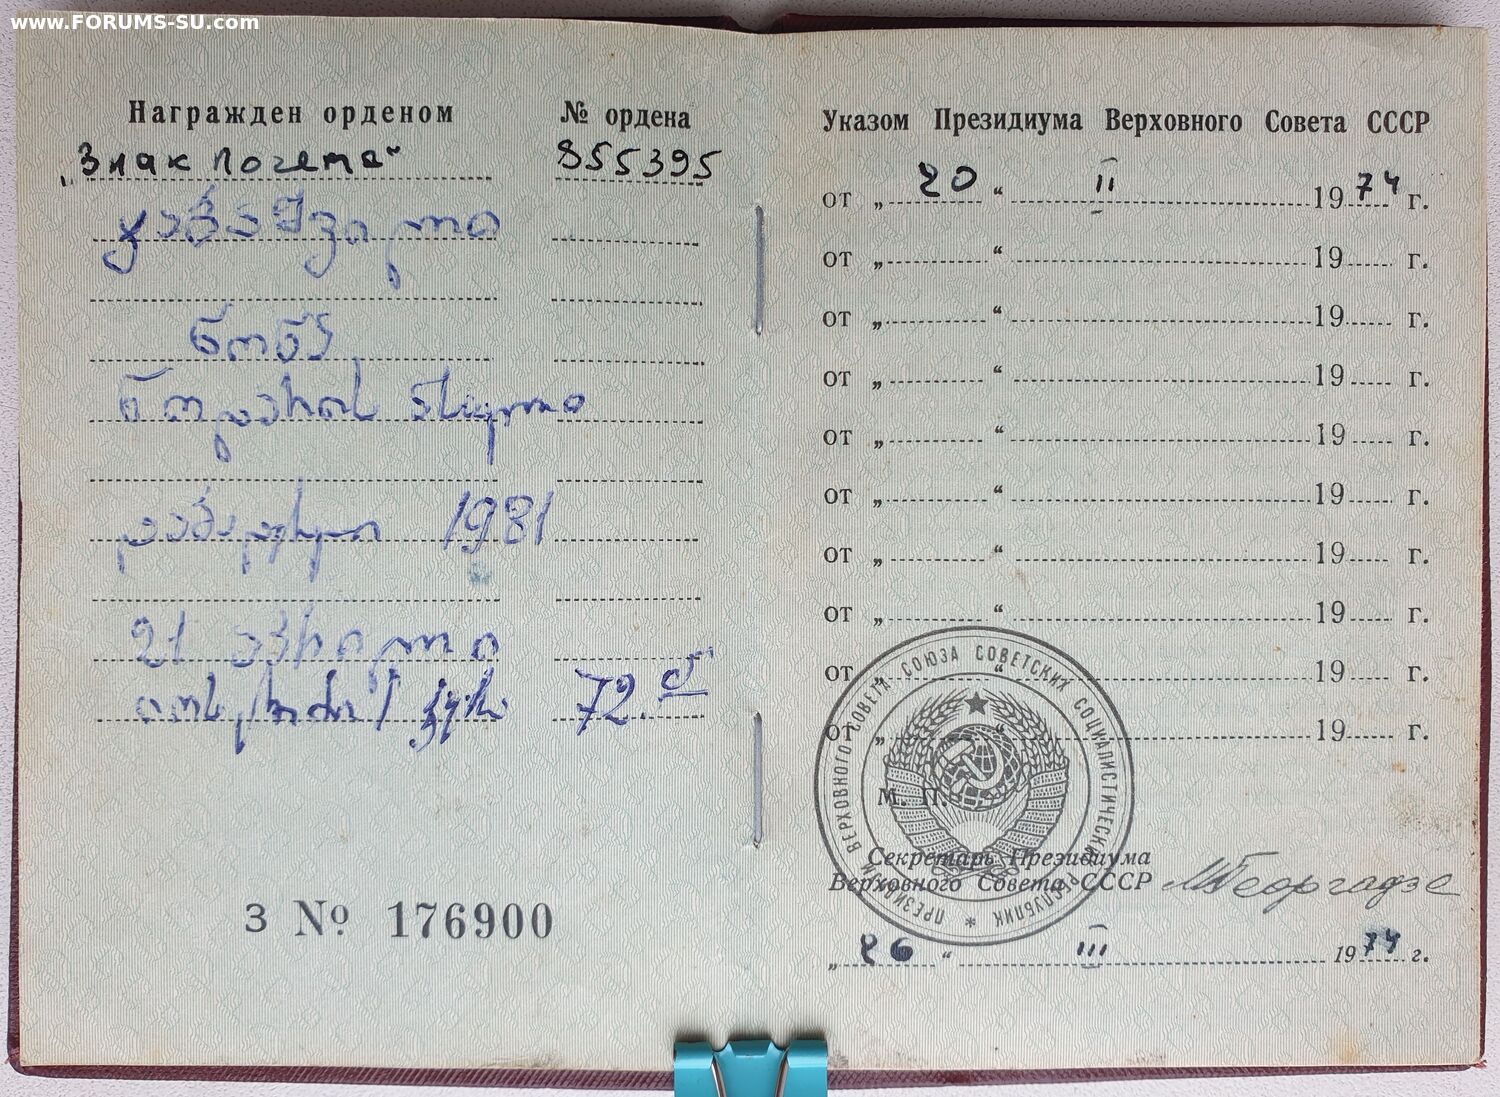 www.FORUMS-SU.com
Награжден орденом
№ ордена
„Знак Почета“
855395
ჯაბაშვილი
ნონა
ნოდარის ასული
დაბადებული 1981
21 აპრილი
72.
З № 176900
Указом Президиума Верховного Совета СССР
от „ 20 “ II 1974 г.
от „ “ 19 г.
от „ “ 19 г.
от „ “ 19 г.
от „ “ 19 г.
от „ “ 19 г.
от „ “ 19 г.
от „ “ 19 г.
от „ “ 19 г.
от „ “ 19 г.
М. П.
ПРЕЗИДИУМ ВЕРХОВНОГО СОВЕТА СОЮЗА СОВЕТСКИХ СОЦИАЛИСТИЧЕСКИХ РЕСПУБЛИК *
Секретарь Президиума
Верховного Совета СССР МГеоргадзе
„ 26 “ III 1974 г.